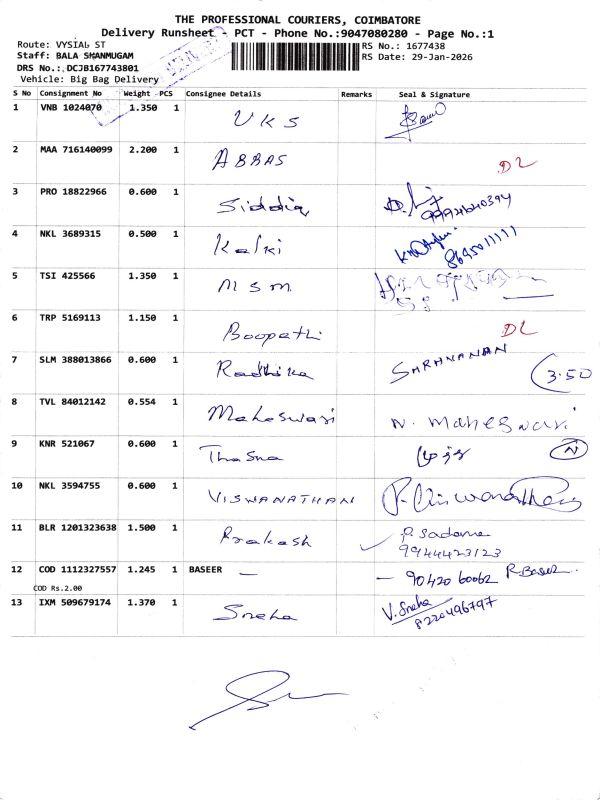 THE PROFESSIONAL COURIERS, COIMBATORE
Delivery Runsheet - PCT - Phone No.:9047080280 - Page No.:1
Route: VYSIAL ST
RS No.: 1677438
Staff: BALA SHANMUGAM
RS Date: 29-Jan-2026
DRS No.:.DCJB167743801
Vehicle: Big Bag Delivery
S No Consignment No Weight PCS Consignee Details Remarks Seal & Signature
1 VNB 1024070 1.350 1 UKS
2 MAA 716140099 2.200 1 ABBAS DL
3 PRO 18822966 0.600 1 Siddiq 9994640394
4 NKL 3689315 0.500 1 Kalki 8695011111
5 TSI 425566 1.350 1 MSM
6 TRP 5169113 1.150 1 Boopathi DL
7 SLM 388013866 0.600 1 Radhika SARAVANAN 3.50
8 TVL 84012142 0.554 1 Maheswari N. maheswari
9 KNR 521067 0.600 1 Thasna N
10 NKL 3594755 0.600 1 VISWANATHAN
11 BLR 1201323638 1.500 1 Prakash P. Sadama
9944423123
12 COD 1112327557 1.245 1 BASEER — – 90420 60062 R.Baseer
COD Rs.2.00
13 IXM 509679174 1.370 1 Sneha V. Sneha
8220496797